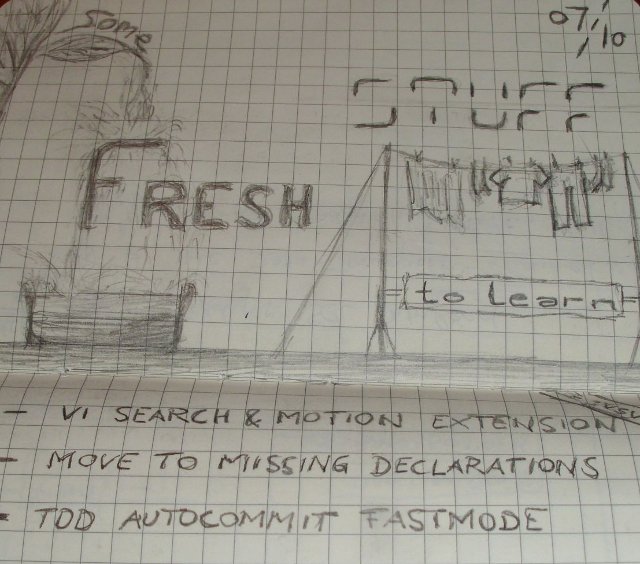 Some
07/
/10
STUFF
FRESH
to learn
- VI SEARCH & MOTION EXTENSION
- MOVE TO MIISSING DECLARATIONS
- TDD AUTOCOMMIT FASTMODE